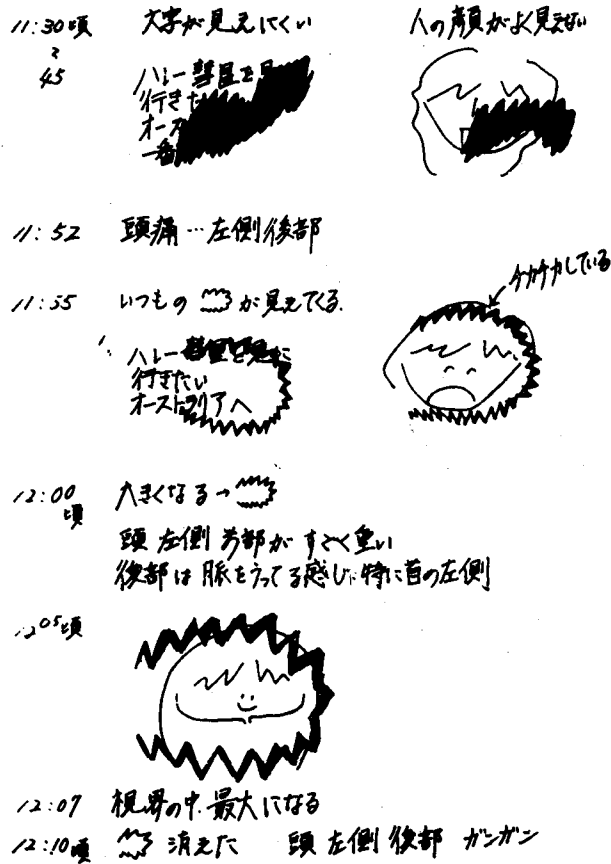 11:30頃 文字が見えにくい 人の顔がよく見えない
〜
45
ハレー彗星を見
行きた
オース
一番
11:52 頭痛…左側後部
11:55 いつもの が見えてくる.
チカチカしている
ハレー彗星を見に
行きたい
オーストラリアへ
12:00頃 大きくなる→
頭 左側 が すごく重い
後部は 脈をうってる感じ. 特に首の左側
12 05頃
12:07 視界の中. 最大になる
12:10頃 消えた 頭 左側 後部 ガンガン